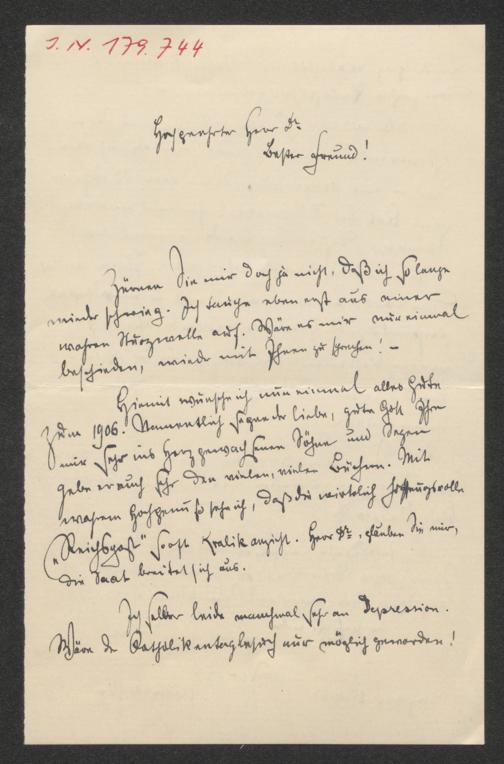 J. N. 179.744
Hochgeehrter Herr Dr.
Bester Freund!
Zürnen Sie mir doch ja nicht, daß ich so lange
wieder schwieg. Ich tauche eben erst aus einer
wahren Sturzwelle auf. Wäre es mir nur einmal
beschieden, wieder mit Ihnen zu sprechen! –
Hiemit wünsche ich nun einmal alles Gute
zum 1906. Namentlich segne der liebe, gute Gott Ihre
mir sehr ins Herz gewachsenen Söhne und Segen
gebe er auch Ihr den vielen, vielen Büchern. Mit
wahrem Hochgenuß sehe ich, daß die wirklich hoffnungsvolle
"Reichspost" so oft Kralik anzieht. Herr Dr., glauben Sie mir,
die Saat breitet sich aus.
Ich selber leide manchmal sehr an Depression.
Wäre der Katholikentag nur möglich geworden!